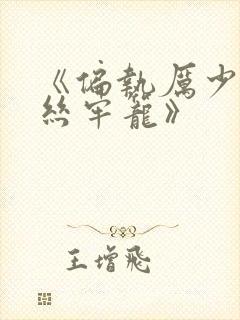 《偏執厲少
絲牢籠》
王增飛